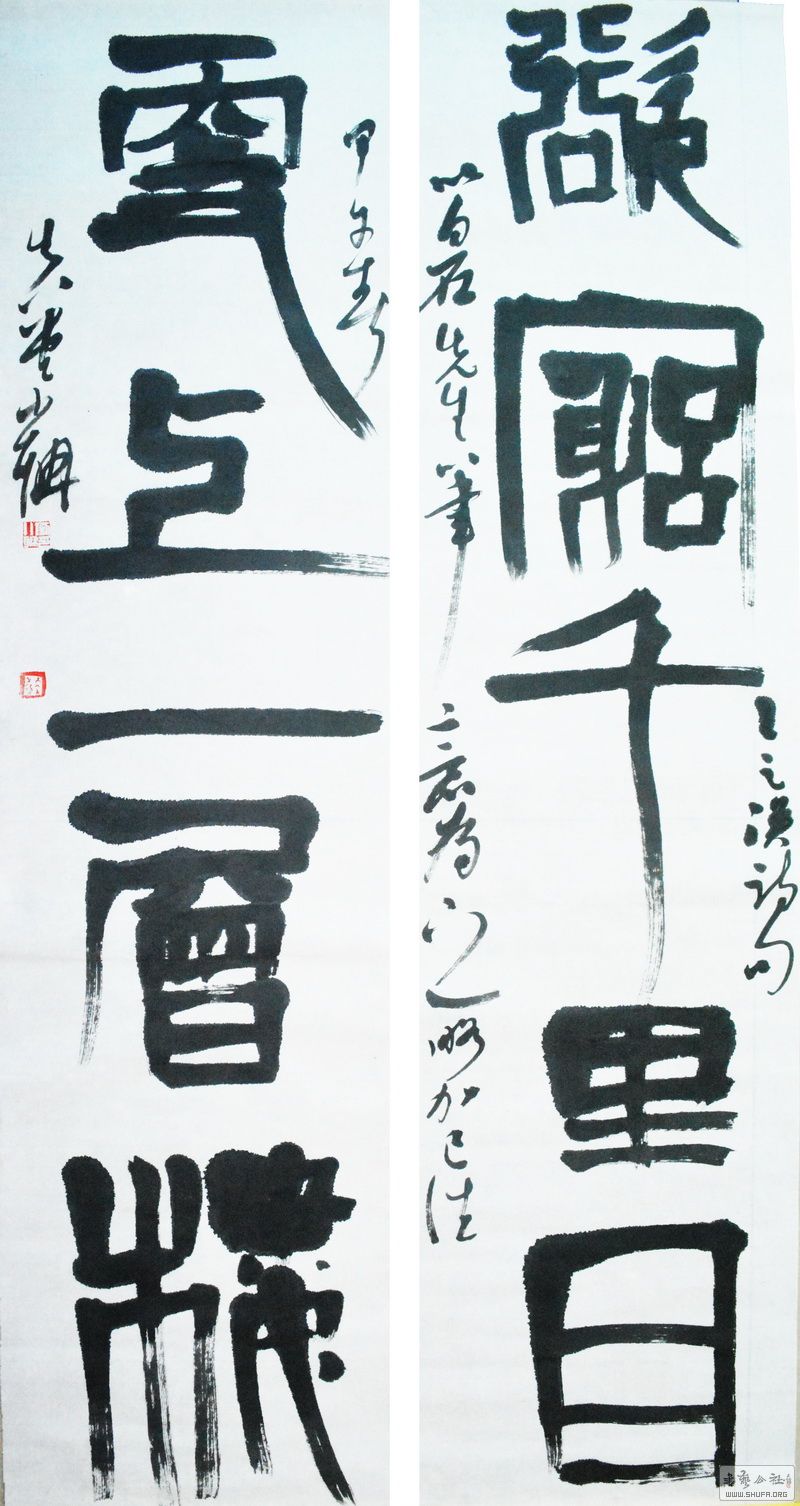 欲窮千里目
王之渙詩句
以白石先生筆意為之略加己法
更上一層樓
甲午春
书艺公社
WWW.SHUFA.ORG